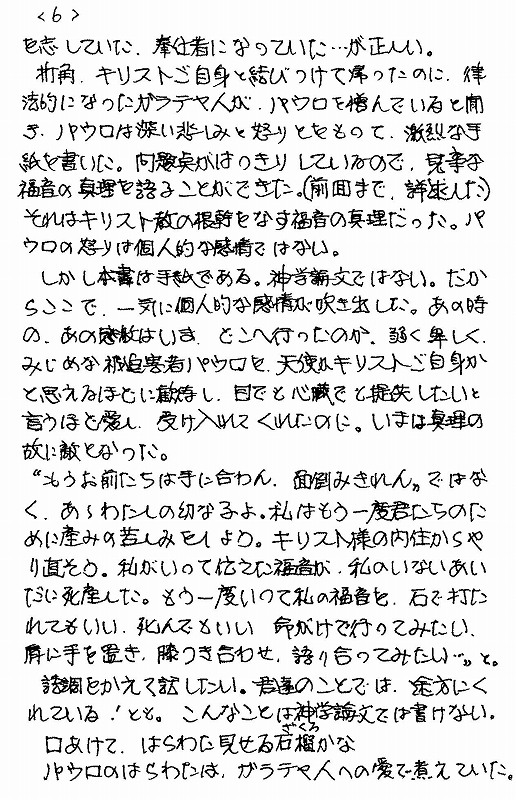 <6>
を志していた、奉仕者になっていた…が正しい。
折角、キリストご自身と結びつけて帰ったのに、律
法的になったガラテヤ人が、パウロを憎んでいると聞
き、パウロは深い悲しみと怒りとをもって、激烈な手
紙を書いた。問題点がはっきりしているので、見事な
福音の真理を語ることができた。(前回まで、詳述した)
それはキリスト教の根幹をなす福音の真理だった。パ
ウロの怒りは個人的な感情ではない。
しかし本書は手紙である。神学論文ではない。だか
らここで、一気に個人的な感情が吹き出した。あの時
の、あの感激はいま、どこへ行ったのか、弱く卑しく、
みじめな被迫害者パウロを、天使かキリストご自身か
と思えるほどに歓待し、目でも心臓でも提供したいと
言うほど愛し、受け入れてくれたのに。いまは真理の
故に敵となった。
“もうお前たちは手に合わん、面倒みきれん”ではな
く、あゝわたしの幼な子よ。私はもう一度君たちのた
めに産みの苦しみをしよう。キリスト様の内住からや
り直そう。私がいって伝えた福音が、私のいないあい
だに死産した。もう一度いって私の福音を、石で打た
れてもいい、死んでもいい 命がけで行ってみたい、
肩に手を置き、膝つき合わせ、語り合ってみたい…”と。
語調をかえて話したい。君達のことでは、途方にく
れている！とも。こんなことは神学論文では書けない。
口あけて、はらわた見せる石榴かな
ざくろ
パウロのはらわたは、ガラテヤ人への愛で煮えていた。